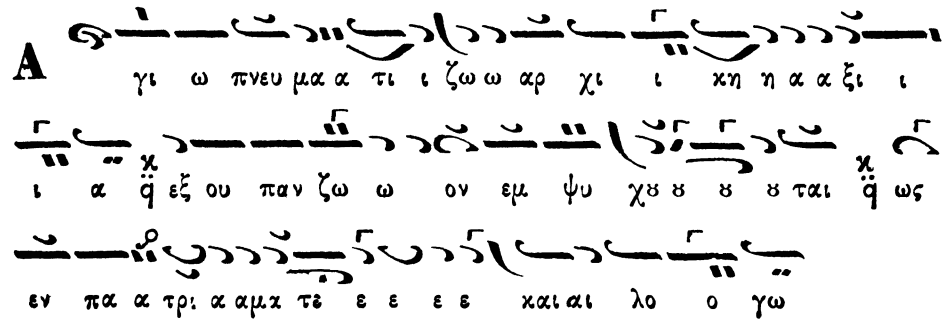 Α γι ω πνευ μα α τι ι ζω ω αρ χι ι κη η α α ξι ι
ι α κ q̈ εξ ου παν ζω ω ον εμ ψυ χȣ ȣ ȣ ȣ ται κ q̈ ως
εν πα α τρι α αμα τε ε ε ε ε και αι λο ο γω